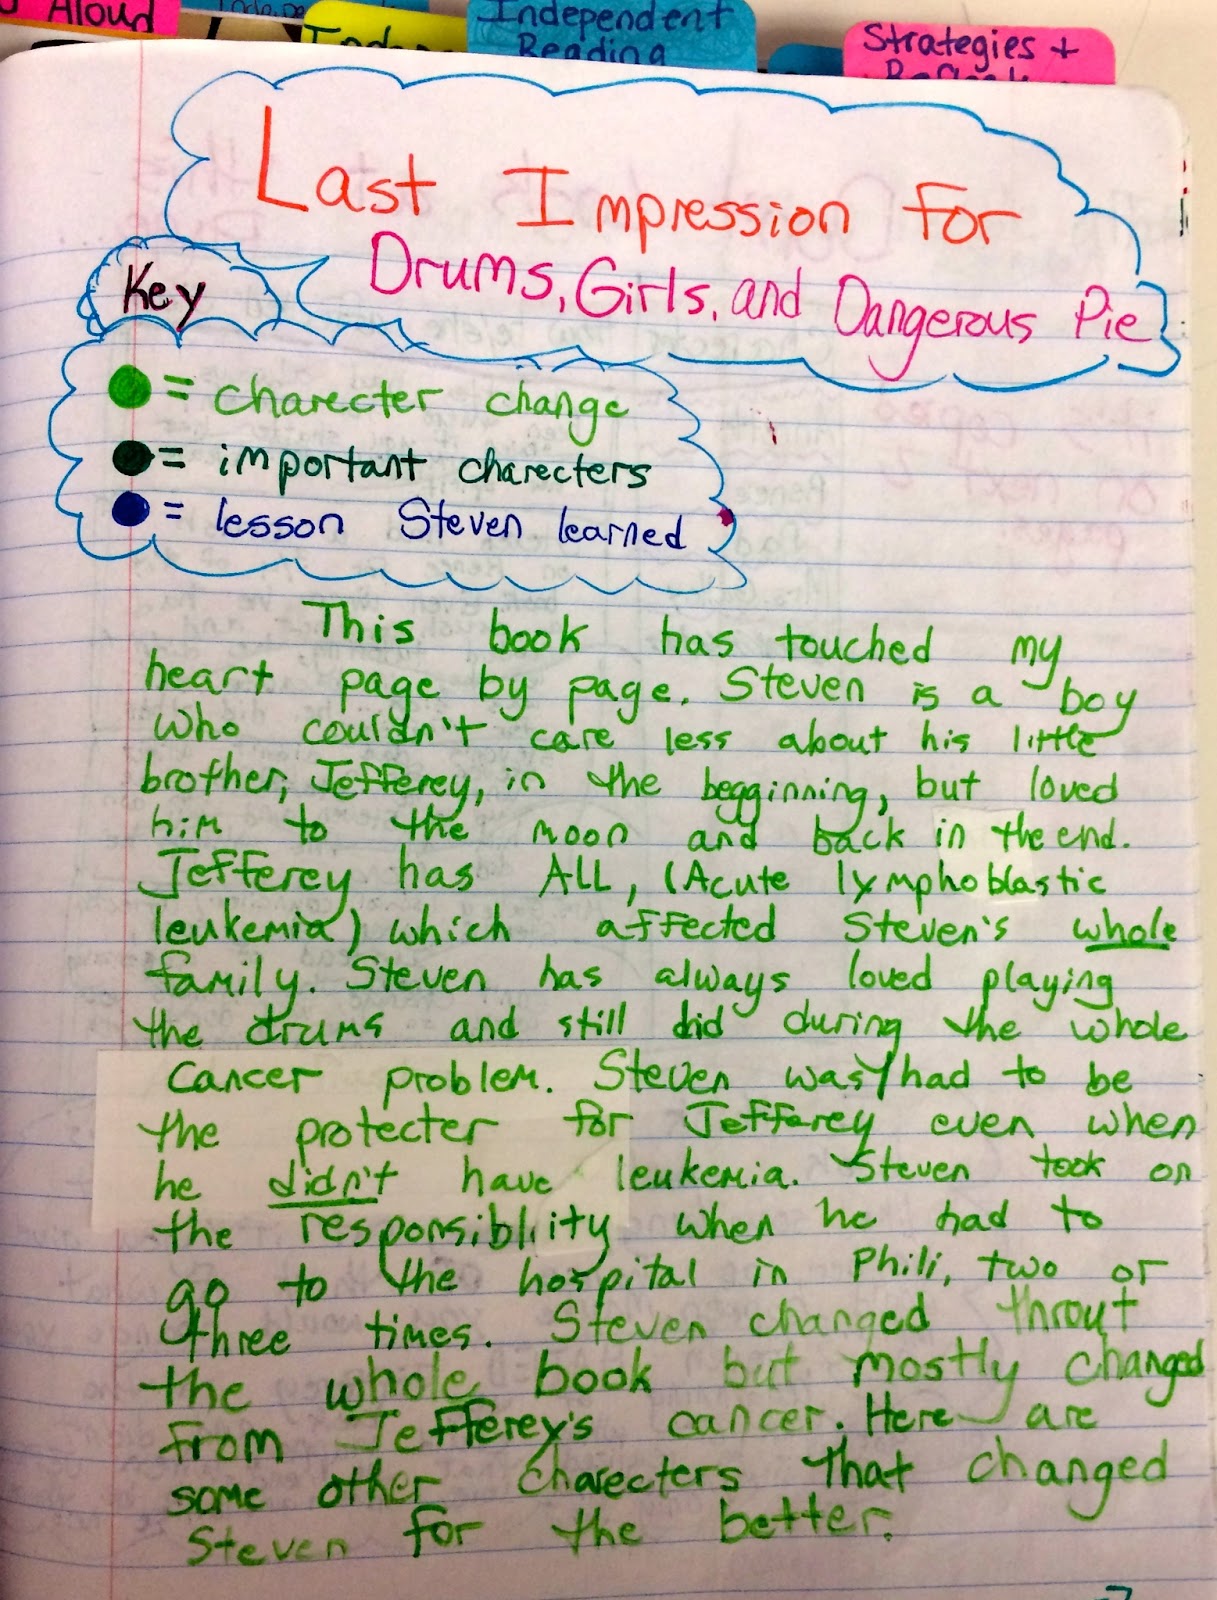 Aloud
Independent
Reading
Strategies +
Last Impression for
Drums, Girls, and Dangerous Pie
Key
= charecter change
= important charecters
= lesson Steven learned
This book has touched my
heart page by page. Steven is a boy
who couldn't care less about his little
brother, Jefferey, in the begginning, but loved
him to the moon and back in the end.
Jefferey has ALL, (Acute lymphoblastic
leukemia) which affected Steven's whole
family. Steven has always loved playing
the drums and still did during the whole
cancer problem. Steven was/had to be
the protecter for Jefferey even when
he didn't have leukemia. Steven took on
the responsiblity when he had to
go to the hospital in Phili, two or
three times. Steven changed throut
the whole book but mostly changed
from Jefferey's cancer. Here are
some other charecters that changed
Steven for the better.